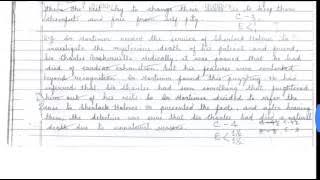 them the best shy to change them is to keep them
and free from self pity C - 3
E <
Q Dr Mortimer needed the service of Sherlock Holmes to
investigate the mysterious death of his patient and friend,
Sir Charles Baskerville. Medically, it was proved that he had
died of cardiac exhaustion but his features were
beyond recognition. Dr Mortimer found this puzzling. He had
inferred that Sir Charles had seen something that frightened
him out of his wits. So Dr Mortimer decided to refer the
case to Sherlock Holmes. He presented the facts, and after hearing
them, the detective was sure that Sir Charles had died a natural
death due to unnatural reasons. C - 4
E < 1½